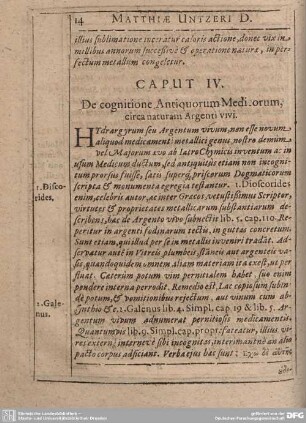 14 MATTHIÆ UNTZERI D.
illius sublimatione moveatur caloris actione, donec vix in
millibus annorum successivè & operatione naturæ, in per-
fectum metallum congeletur.
CAPUT IV.
De cognitione Antiquorum Medicorum,
circa naturam Argenti vivi.
HYdrargyrum seu Argentum vivum, non esse novum
aliquod medicamenti metallici genus, nostra demùm
vel Majorum ævo ab IatroChymicis inventum & in
usum Medicum ductum, sed antiquitùs etiam non incogni-
tum prorsus fuisse, satis superq; priscorum Dogmaticorum
scripta & monumenta egregia testantur. 1. Dioscorides
1. Dioscorides,
enim celebris autor, & inter Græcos vetustissimus Scriptor,
virtutes & proprietates metallicarum substantiarum de-
scribens, hæc de Argento vivo subnectit lib. 5. cap. 110. Re-
peritur in argenti fodinarum tectis, in guttas concretum.
Sunt etiam, qui illud per se in metallis inveniri tradāt. Ad-
servatur autē in vitreis plumbeis stāneis aut argenteis va-
sis, quandoquidem omnem aliam materiam exest, ut per-
fluat. Cæterùm potum vim pernitialem habet, suo enim
pondere interna perrodit. Remedio est, Lac copiosum subin-
dè potum, & vomitionibus rejectum, aut vinum cum ab-
1. Galenus.
sinthio &c. 1. Galenus lib. 4. Simpl. cap. 19. & lib. 5.
Argentum vivum adnumerat pernitiosis medicamentis.
Quantumvis lib. 9. Simpl. cap. prop. fateatur, illius vi-
res externè interne sibi incognitas,
pacto corpus adficiant. Verba ejus hæc sunt: